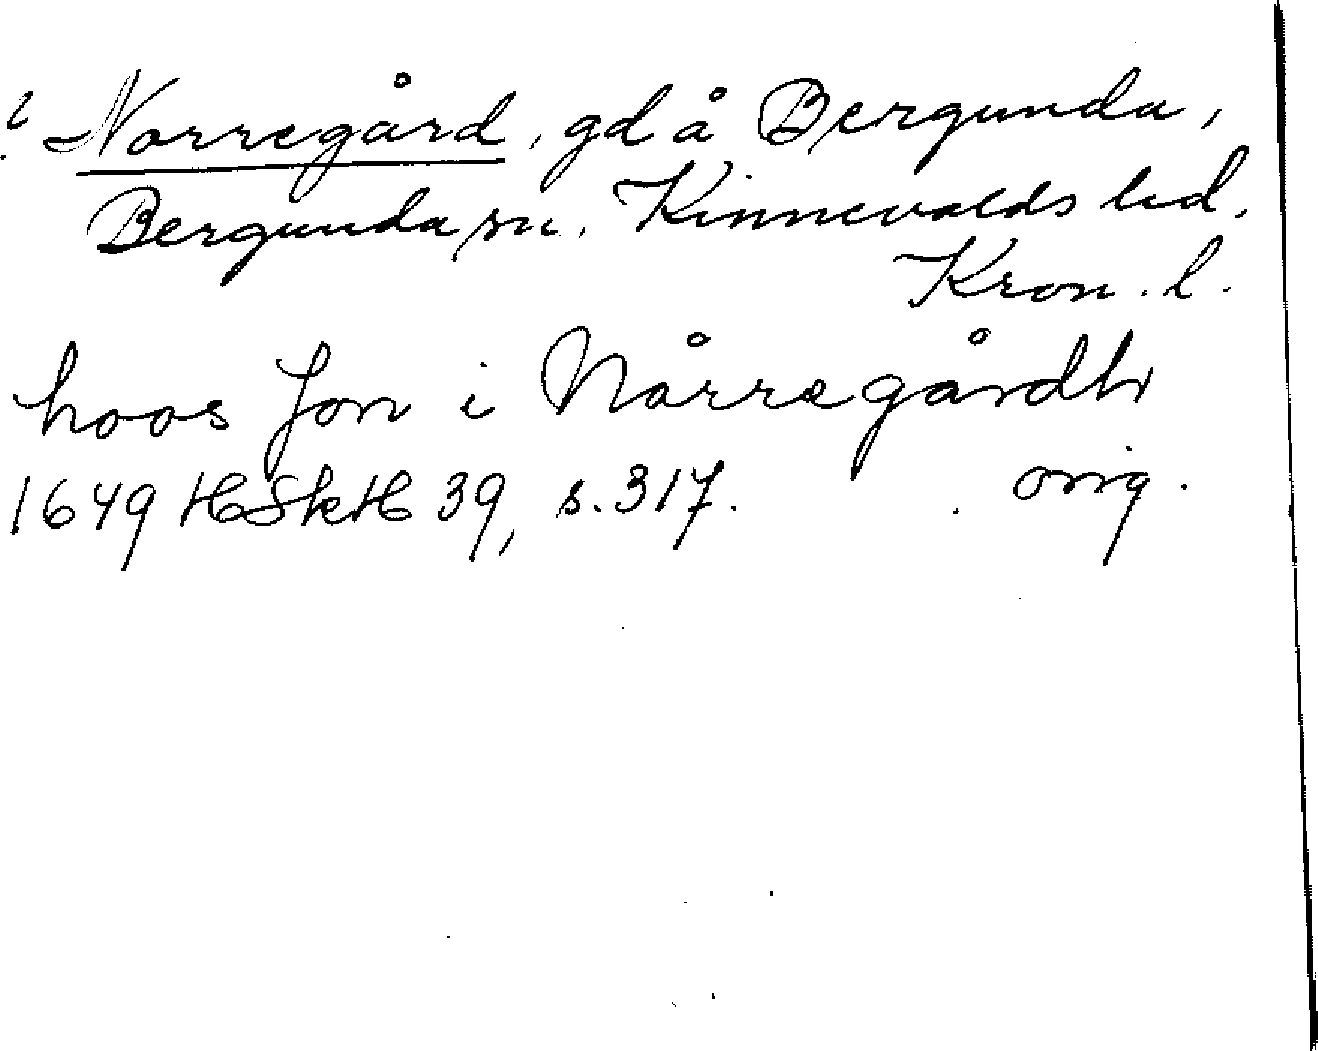 ? Norregård, gd å Bergunda,
Bergunda sn. Kinnevalds hd.
Kron. l.
hoos Jon i Nårregårdh
1649 HSkH 39, s. 317. orig.